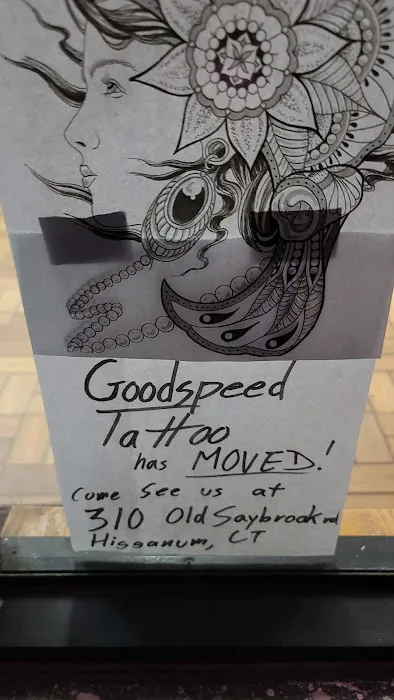 Goodspeed
Tattoo
has MOVED!
Come See us at
310 Old Saybrook rd
Higganum, CT